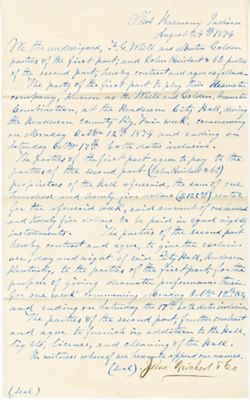 New Harmony Indiana
August 24th 1874
We the undersigned, F. G. White and Martin Golden
parties of the first part, and John Reichert & Co. parties
of the second part, hereby contract and agree as follows:
The party of the first part to play their Dramatic
company, known as the White and Golden
Combination, at the Henderson City Hall, during
the Henderson County Ky. Fair week, commencing
on Monday October 12th 1874 and ending on
Saturday October 17th both dates inclusive.
The parties of the first part agree to pay to the
parties of the second part (John Reichert & Co)
proprietors of the Hall aforesaid, the sum of one
hundred and twenty five dollars ($125.00) rental
for the aforesaid week, said sum of one hundred
and twenty five dollars to be paid in equal nightly
installments. The parties of the second part
hereby contract and agree, to give the exclusive
use, day and night of said City Hall, Henderson
Kentucky, to the parties of the first part, for the
purpose of giving dramatic performances therein
for one week commencing Monday October 12th 1874
and ending on Saturday the 17th both dates inclusive.
The parties of the second part, further contract
and agree to furnish in addition to the Hall,
lights, License, and cleaning of the Hall.
In witness whereof we hereunto append our names,
(seal) John Reichert & Co
(seal)